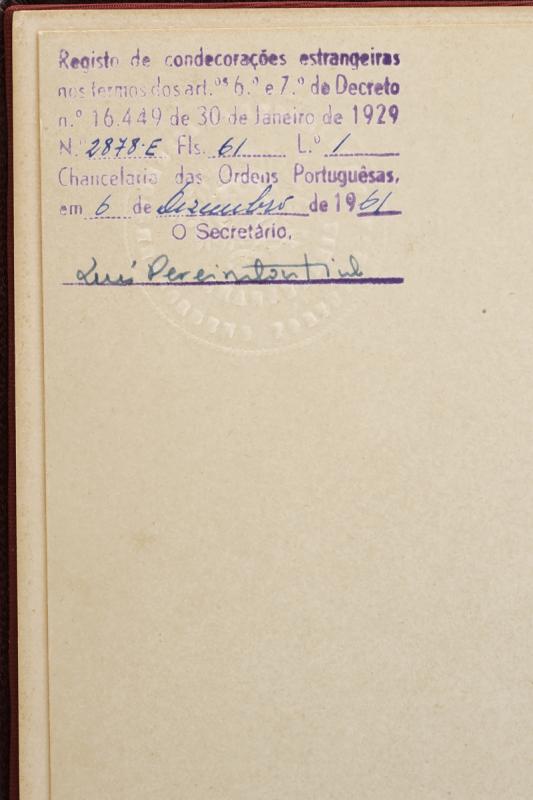 Registo de condecorações estrangeiras
nos termos dos art.ºs 6.º e 7.º de Decreto
n.º 16.449 de 30 de Janeiro de 1929
N.º 2878-E Fls. 61 L.º 1
Chancelaria das Ordens Portuguêsas,
em 6 de Dezembro de 1961
O Secretário,
Luís Pereira